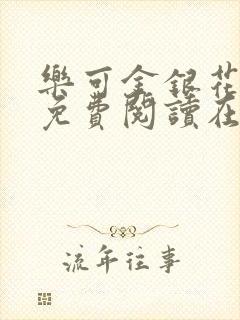 樂可金銀花
免費閱讀在
流年往事